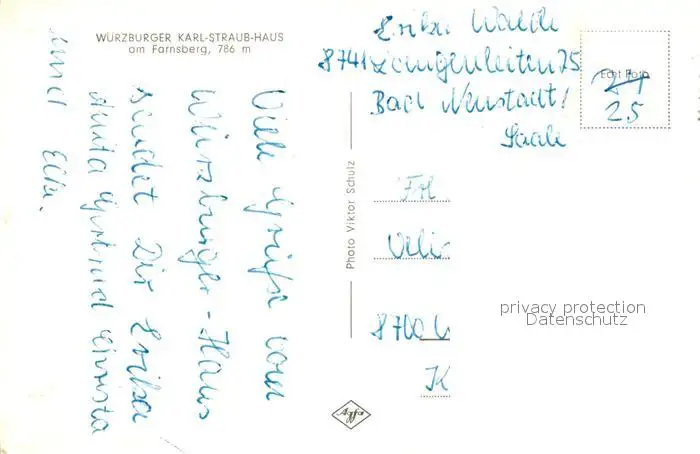 WÜRZBURGER KARL-STRAUB-HAUS
am Farnsberg, 786 m
Viele Grüße vom
Würzburger-Haus
sendet Dir Erika
Anita Gertrud Christa
und Elke.
Photo Viktor Schulz
Agfa
Erika
8741 Langenleiten 75
Bad Neustadt/
Saale
Echt Foto
24
25
Frl
8700
K
privacy protection
Datenschutz